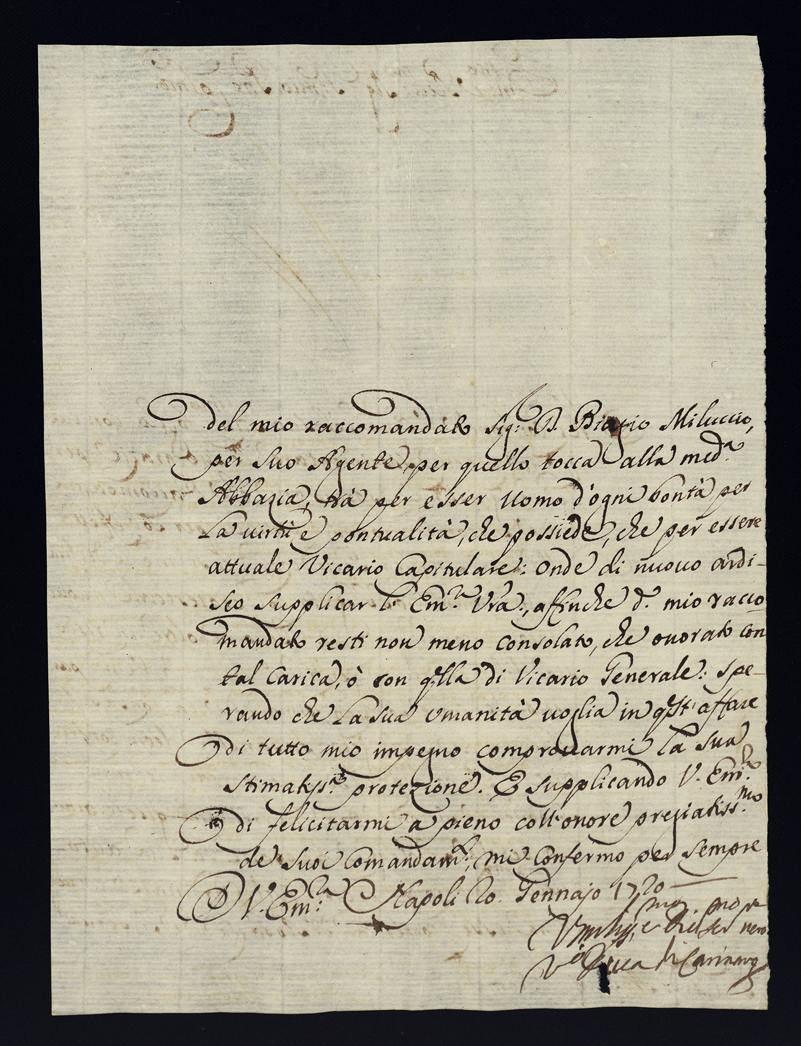 del mio raccomandato Sig.r D. Biagio Miluccio,
per suo Agente, per quello tocca alla med.a
Abbazia, trà per esser Uomo d'ogni bontà per
la virtù, e pontualità, che possiede, che per essere
attuale Vicario Capitulare: onde di nuovo ardi-
sco supplicar l' Em.a Vra., affinche d.o mio racco-
mandato resti non meno consolato, che onorato con
tal Carica, ò con q.lla di Vicario Generale: spe-
rando che la sua Umanità voglia in q.st' affare
di tutto mio impegno comprovarmi la sua
stimatiss.a protezione. E supplicando V. Em.a
di felicitarmi a pieno coll'onore pregiatiss.mo
de suoi Comandam.ti, mi confermo per sempre
D V. Em.a Napoli 20. Gennajo 1720
Duca di